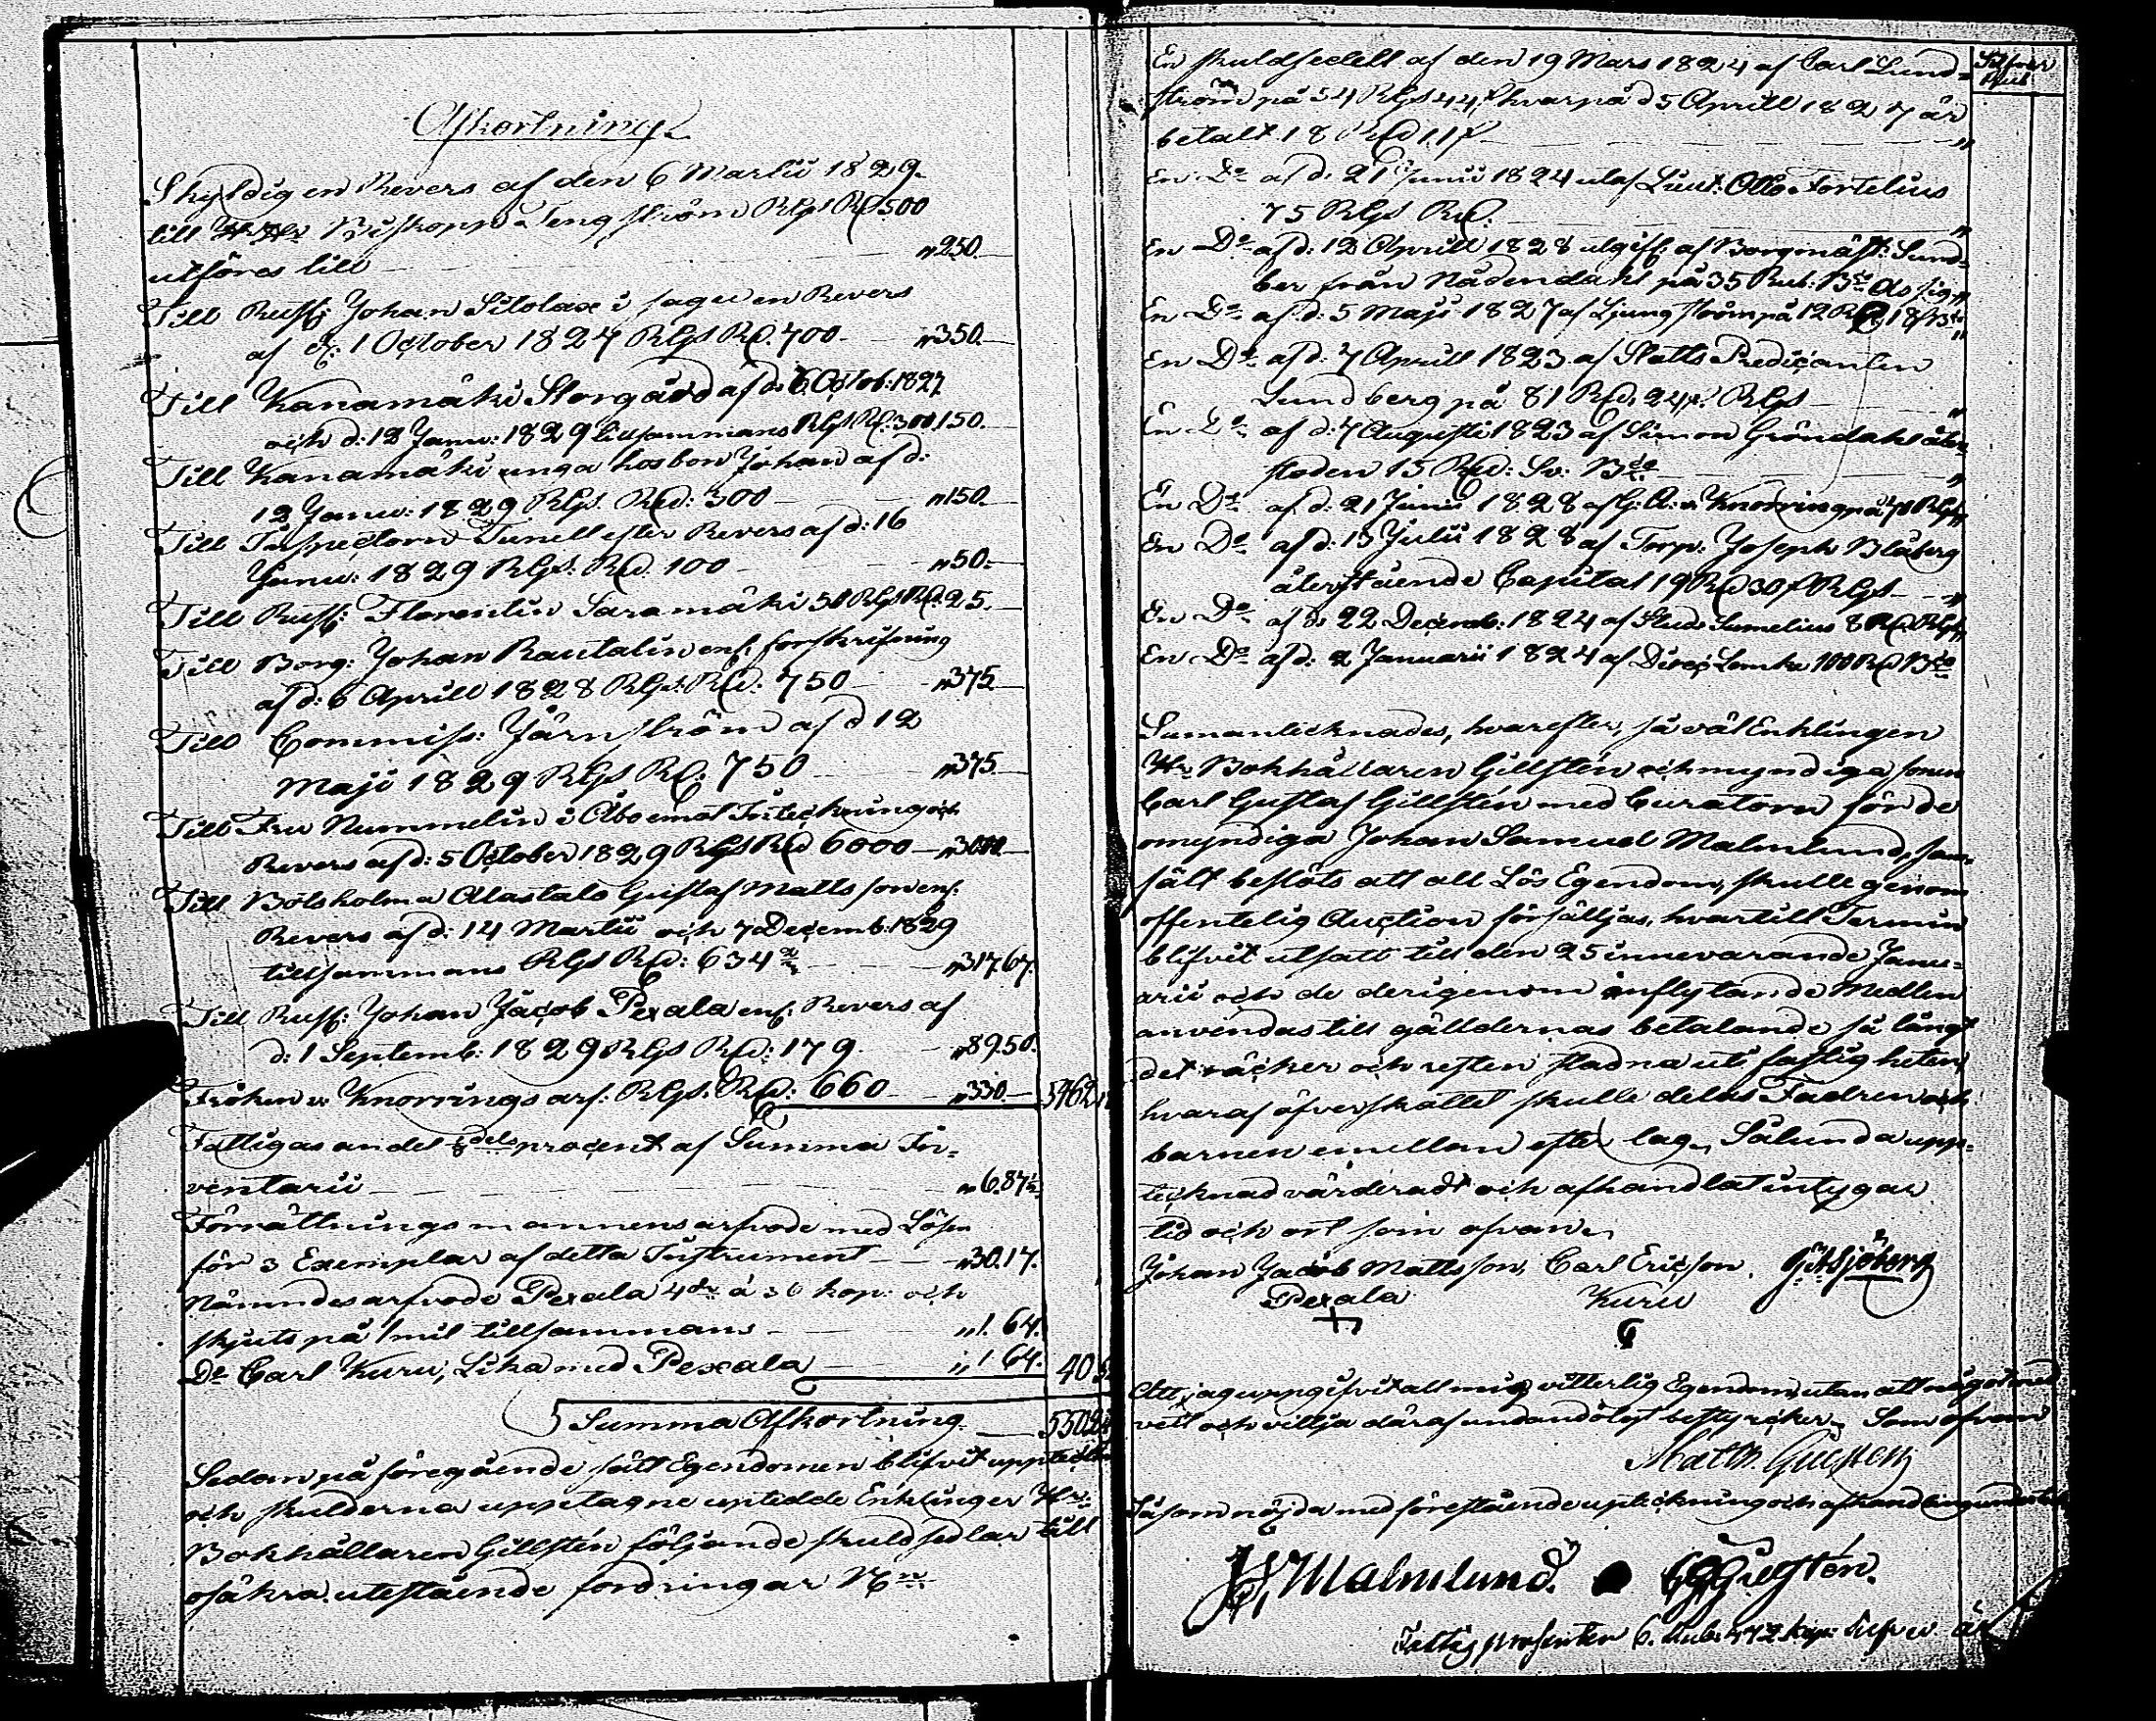 Afkortning
Skyldig en Revers af den 6 Martii 1829
till Hr Biskopp Tengström RGs Rd 500
utföres till " 250.
Till Rusth: Johan Sitolax i sagu en Revers
af d: 1 October 1827 RGs Rd. 700. " 350.
Till Kanamäki Storgård af d: 6 Octob: 1827
och d: 12 Janu: 1829 tillsammans RGs Rd: 300, 150.
Till Kanamäki unga hosbon Johan af d:
12 Janu: 1829 RGs. Rd: 300 " 150.
Till Inspectorn Tunell efter Revers af d: 16
Janu: 1829 RGs: Rd. 100 " 50.
Till Rusth: Florentin Saramäki 50 RGs Rd: 25.
Till Borg: Johan Rautalin enl. förskrifning
af d: 6 Aprill 1828 RGs: Rd: 750 " 375.
Till Commiss: Järnström af d 12
Maji 1829 RGs Rd: 750 " 375.
Till Fru Nummelin i Åbo emot Inteckning och
Revers af d: 5 October 1829 RGs Rd 6000 " 3000.
Till Bölsholma Alastalo Gustaf Matts son enl.
Revers af d: 14 Martii och 7 Decemb: 1829
tillsammans RGs Rd: 634 " 317.67.
Till Rusth: Johan Jacob Pexala enl. Revers af
d: 1 Septemb: 1829 RGs Rd: 179 " 89.50.
Fröken v: Knorrings arf: RGs. Rd: 660 " 330. 5462
Fattigas andel 1/8 dels procent af Summa In-
ventarii " 6.87½
Förrättningsmannens arfvode med Lösen
för 3 Exemplar af detta Instrument " 30.17.
Nämndes arfvode Pexala 4 à 36 kop: och
skjuts på 1 mil tillsammans " 1.64.
Do Carl Kuru, Lika med Pexala " 1.64. 40
Summa Afkortning 5502
Sedan på föregående sätt Egendomen blifvit
och skulderna upptagne uptedde Enklingen Hr
Bokhållaren Gillstén följande skuldsedlar till
osäkra utestående fordringar
Silfver
Rub
En skuldsedell af den 19 Mars 1824 af Carl Lund-
ström på 54 RGs 44 hvarpå d 5 Aprill 1827 är
betalt 18
En Do af d: 21 Junii 1824 utaf Lieut: Otto Fortelius
75 RGs Rd. "
En Do af d: 12 Aprill 1828 utgifl. af Borgmäst: Sund-
ber från Nådendahl på 35 Rub: Bco Assig "
En Do af d: 5 Maji 1827 af Ljungström på 12 Rd, 18 "
En Do af d: 7 Aprill 1823 af Slotts Predicanten
Sundberg på 81 Rd. 24 RGs "
En Do af d: 7 Augusti 1823 af Simon Gröndahl åter-
stoden 15 Rd: Sv: Bco "
En Do af d: 21 Junii 1828 af G: A: v Knorring på 70 RGs "
En Do af d: 15 Julii 1828 af Torp: Joseph Blåberg
återstående Capital 19 Rd 30 RGs "
En Do af d: 22 Decemb: 1824 af Stud: Sumelius 8 Rd. RGs "
En Do af d: 2 Januarii 1824 af Direc: Lemke 100 Rd Bco
Sumanticknades, hvarefter, så väl Enklingen
Hr Bokhållaren Gillstén och myndiga sonen
Carl Gustaf Gillstén med Curatorn för de
omyndiga Johan Samuel Malmlund, sam-
fält beslöts att all Lös Egendom, skulle genom
offentelig Auction försälljas, hvartill Termin
blifvit utsatt till den 25 innevarande Janu-
arii och de derigenom inflytande Medlen
användas till gälldernas betalande så långt
det räcker och resten stadna uti fastigheten,
hvaraf öfverskottet skulle delas Fadren och
barnen emellan efter lag. Sålunda upp-
tecknad värderadt och afhandlat intygar
tid och ort som ofvan.
Johan Jacob Mattsson, Carl Ericson. Sjöberg
Pexala Kuru
Att jag uppgifvit all min vitterlig Egendom utan att något med
vett och villja däraf undandöljt bestyrcker. Som ofvan
Math. Gillsten
Såsom nöjda med förestående upteckning och afhandling
J S Malmlund. C G Gillstén.
Fattig prosenten 6. Rub: 87½ kop: Silfver är